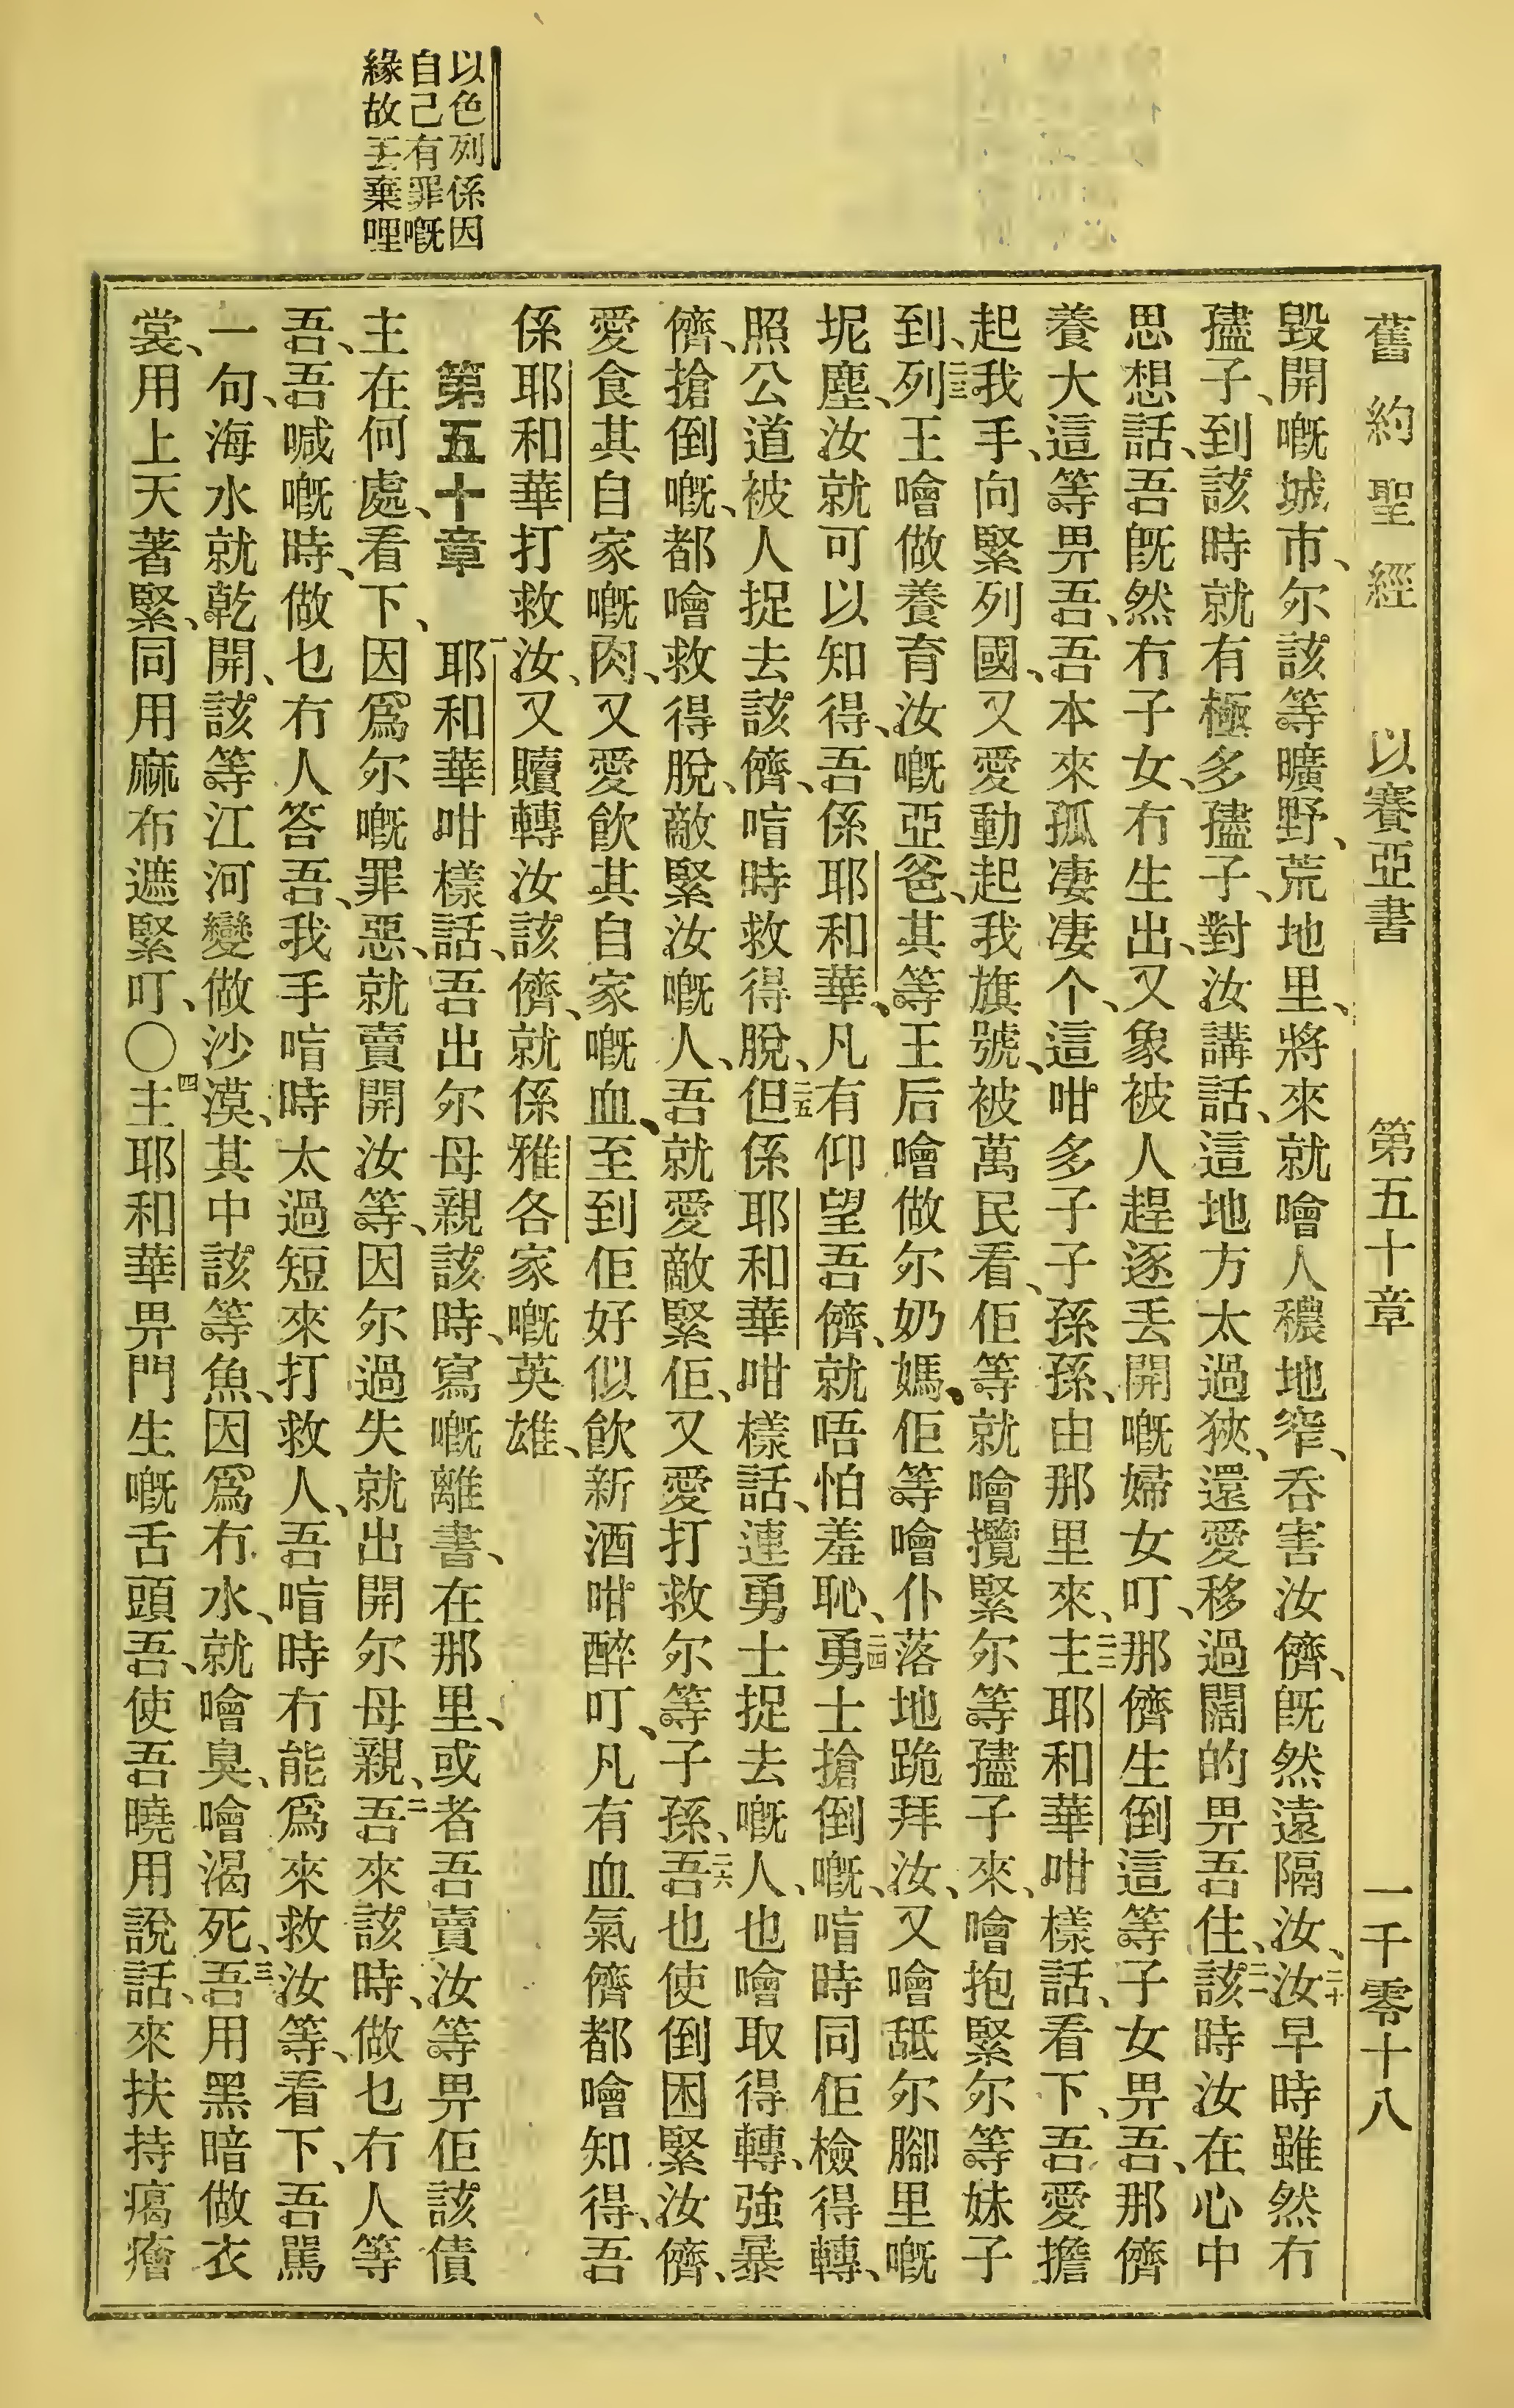 舊約聖經 以賽亞書 第五十章 一千零十八
毀開嘅城市、尔該等曠野、荒地里、將來就噲人穠地窄、吞害汝儕、既然遠隔汝、二十汝早時雖然冇
孻子、到該時就有極多孻子、對汝講話、這地方太過狹、還愛移過闊的畀吾住、二一該時汝在心中
思想話、吾既然冇子女、冇生出、又象被人趕逐丟開嘅婦女叮、那儕生倒這等子女畀吾、那儕
養大這等畀吾、吾本來孤凄凄个、這咁多子子孫孫、由那里來、二二主耶和華咁樣話、看下、吾愛擔
起我手、向緊列國、又愛動起我旗號、被萬民看、佢等就噲攬緊尔等孻子來、噲抱緊尔等妹子
到、二三列王噲做養育汝嘅亞爸、其等王后噲做尔奶媽、佢等噲仆落地跪拜汝、又噲舐尔腳里嘅
坭塵、汝就可以知得、吾係耶和華、凡有仰望吾儕、就唔怕羞恥、二四勇士搶倒嘅、唁時同佢檢得轉、
照公道被人捉去該儕、唁時救得脫、二五但係耶和華咁樣話、連勇士捉去嘅人、也噲取得轉、強暴
儕、搶倒嘅、都噲救得脫、敵緊汝嘅人、吾就愛敵緊佢、又愛打救尔等子孫、二六吾也使倒困緊汝儕、
愛食其自家嘅肉、又愛飲其自家嘅血、至到佢好似飲新酒咁醉叮、凡有血氣儕都噲知得、吾
係耶和華打救汝、又贖轉汝該儕、就係雅各家嘅英雄、
第五十章 一耶和華咁樣話、吾出尔母親該時、寫嘅離書、在那里、或者吾賣汝等畀佢該債
主在何處、看下、因爲尔嘅罪惡、就賣開汝等、因尔過失就出開尔母親、二吾來該時、做乜冇人等
吾、吾喊嘅時、做乜冇人答吾、我手唁時太過短來打救人、吾唁時冇能爲來救汝等、看下、吾罵
一句、海水就乾開、該等江河變做沙漠、其中該等魚、因爲冇水、就噲臭、噲渴死、三吾用黑暗做衣
裳、用上天著緊、同用麻布遮緊叮、〇四主耶和華畀門生嘅舌頭吾、使吾曉用說話、來扶持癘癐
以色列係因
自己有罪嘅
緣故丟棄哩